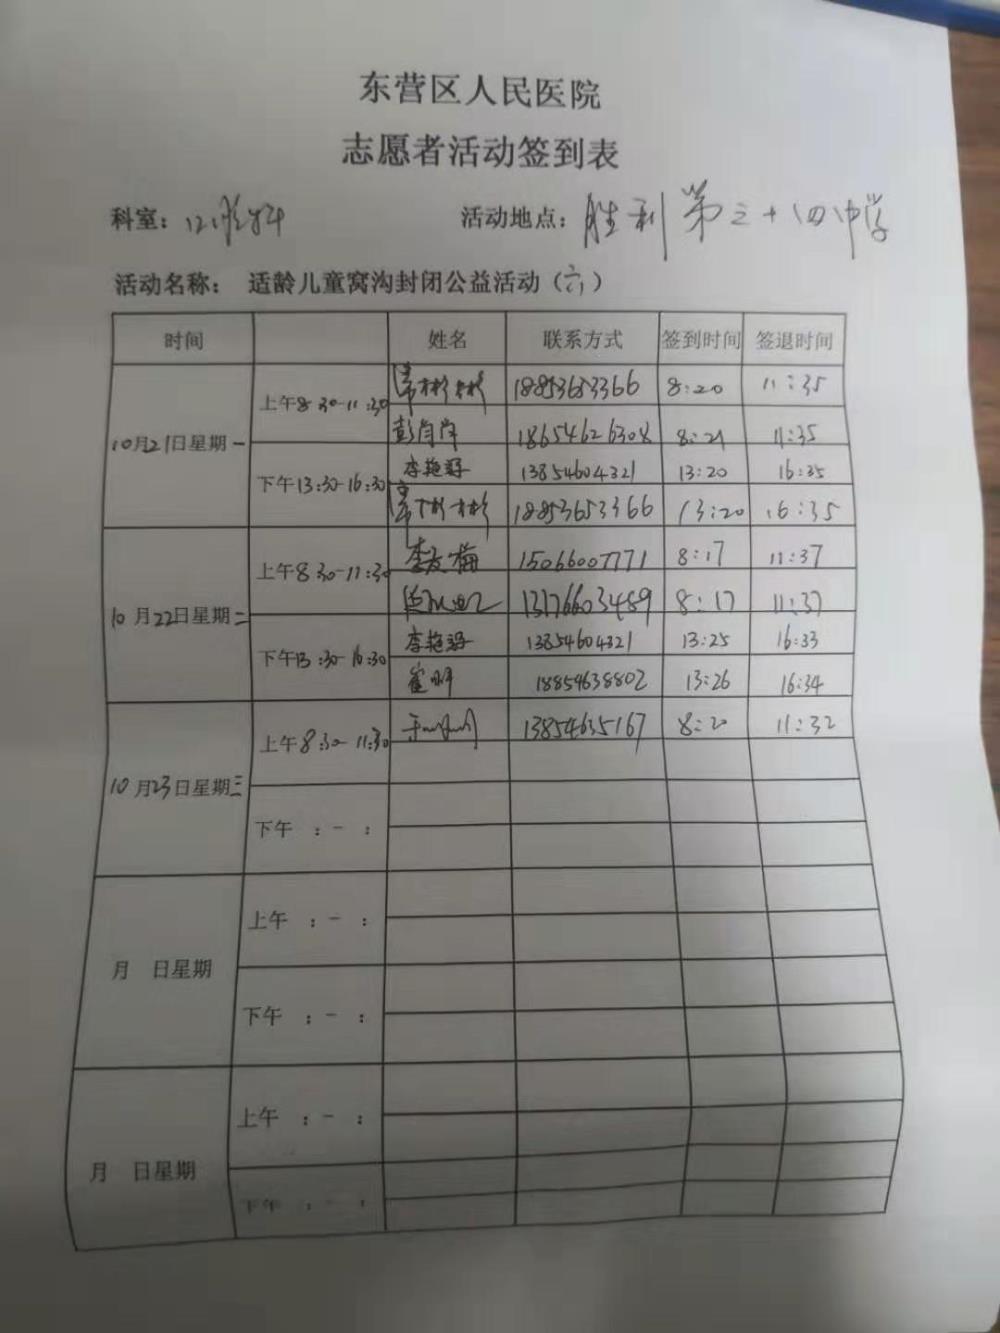 东营区人民医院
志愿者活动签到表
科室：口腔科 活动地点：胜利第三十四中学
活动名称： 适龄儿童窝沟封闭公益活动（六）
时间 姓名 联系方式 签到时间 签退时间
10月21日星期一 上午8:30-11:30 常彬彬 18853653366 8:20 11:35
18654626308 8:21 11:35
下午13:30-16:30 李艳 13854604321 13:20 16:35
常彬彬 18853653366 13:20 16:35
10月22日星期二 上午8:30-11:30 李友梅 15066007771 8:17 11:37
13176603489 8:17 11:37
下午13:30-16:30 李艳 13854604321 13:25 16:33
崔明 18854638802 13:26 16:34
10月23日星期三 上午8:30-11:30 13854635167 8:20 11:32
下午 :- :
月 日星期 上午 :- :
下午 :- :
月 日星期 上午 :- :
下午 :- :